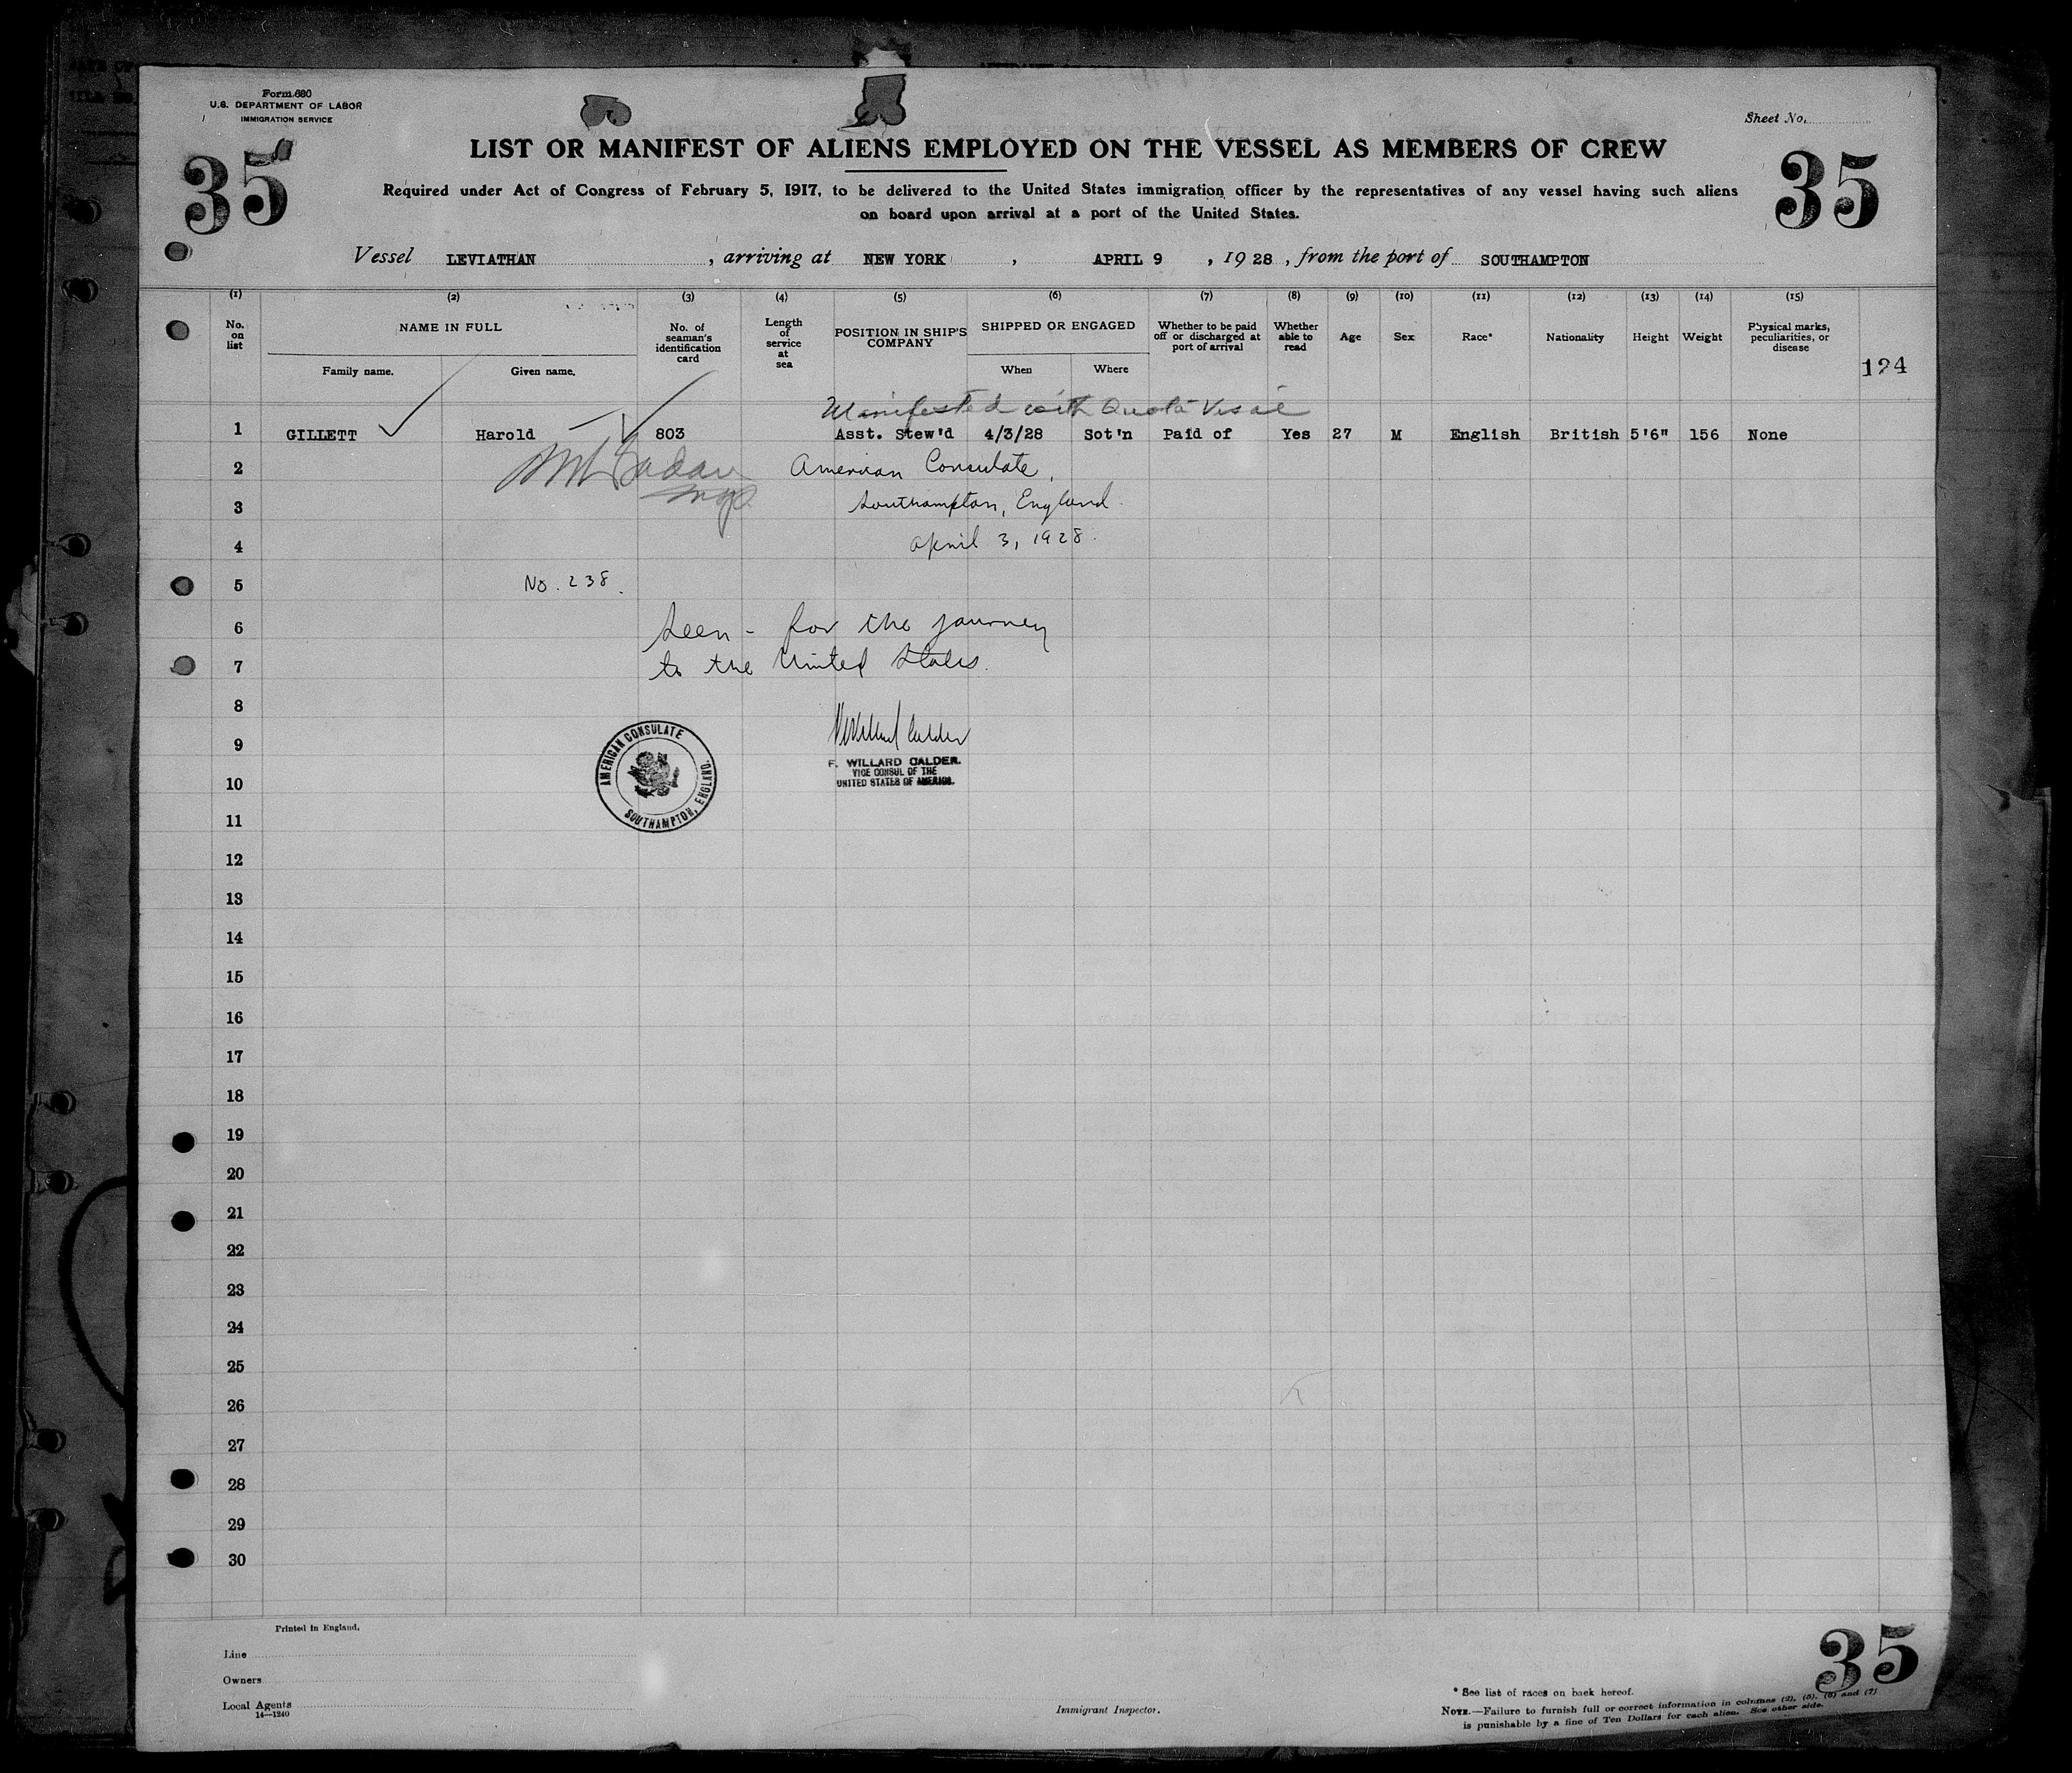 Form 680
U.S. DEPARTMENT OF LABOR
IMMIGRATION SERVICE
Sheet No.
35
35
LIST OR MANIFEST OF ALIENS EMPLOYED ON THE VESSEL AS MEMBERS OF CREW
Required under Act of Congress of February 5, 1917, to be delivered to the United States immigration officer by the representatives of any vessel having such aliens
on board upon arrival at a port of the United States.
Vessel LEVIATHAN , arriving at NEW YORK , APRIL 9 , 1928 , from the port of SOUTHAMPTON
(1) (2) (3) (4) (5) (6) (7) (8) (9) (10) (11) (12) (13) (14) (15)
No. on list
NAME IN FULL
Family name. Given name.
No. of seaman's identification card
Length of service at sea
POSITION IN SHIP'S COMPANY
SHIPPED OR ENGAGED
When Where
Whether to be paid off or discharged at port of arrival
Whether able to read
Age
Sex
Race*
Nationality
Height
Weight
Physical marks, peculiarities, or disease
124
Manifested with Quota Visaé
1 GILLETT Harold 803 Asst. Stew'd 4/3/28 Sot'n Paid of Yes 27 M English British 5'6" 156 None
2 American Consulate,
3 Southampton, England
4 April 3, 1928.
5 No. 238.
6 Seen - for the journey
7 to the United States.
8
9
F. WILLARD CALDER.
VICE CONSUL OF THE
10 UNITED STATES OF AMERICA.
AMERICAN CONSULATE
SOUTHAMPTON, ENGLAND.
11
12
13
14
15
16
17
18
19
20
21
22
23
24
25
26
27
28
29
30
Printed in England.
Line
Owners
Local Agents
14—1240
Immigrant Inspector.
35
* See list of races on back hereof.
NOTE.—Failure to furnish full or correct information in columns (2), (5), (6) and (7)
is punishable by a fine of Ten Dollars for each alien. See other side.